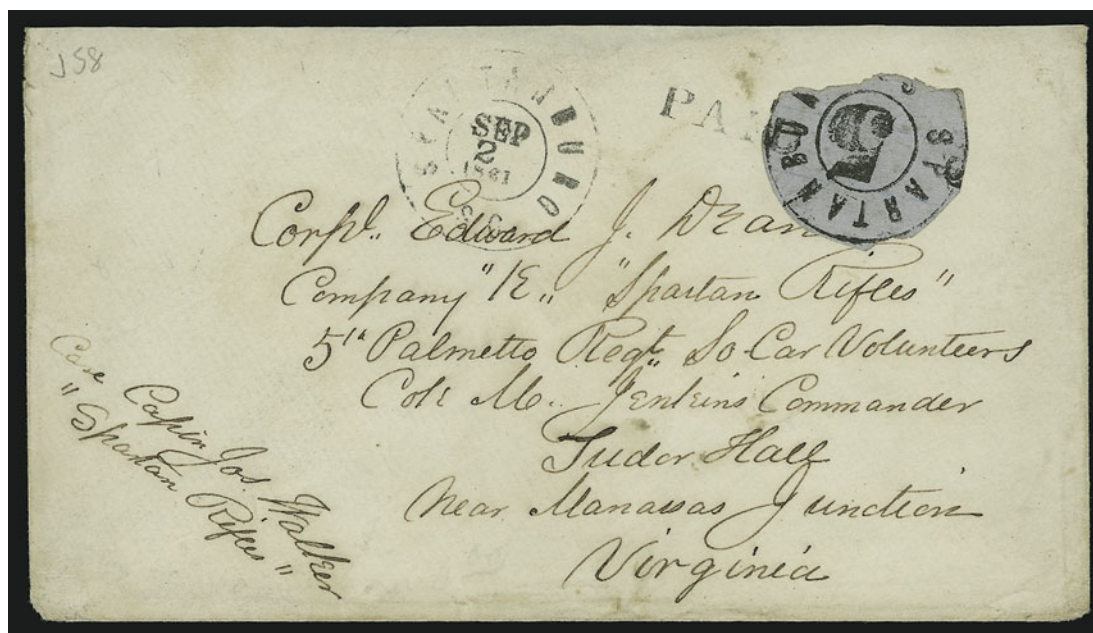 J58
SPARTANBURG
S.C.
SEP
2
1861
PAI
SPARTANBU
5
Corpl. Edward J. Dean
Company "K" "Spartan Rifles"
5th Palmetto Regt. So Car Volunteers
Col. M. Jenkins Commander
Tudor Hall
Near Manassas Junction
Virginia
Care Captn Jos. Walker
"Spartan Rifles"